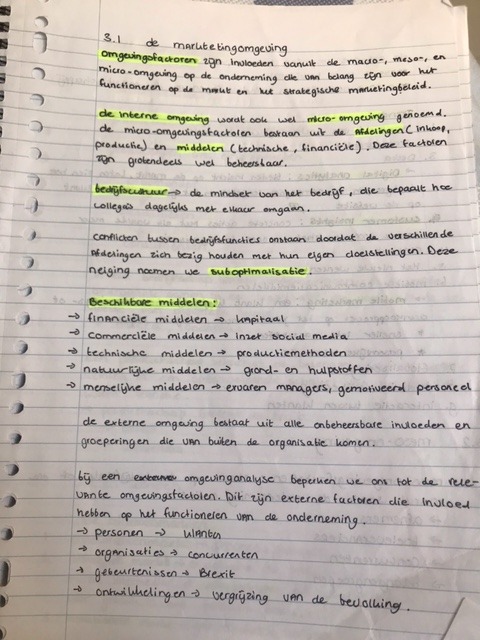 3.1 de marketingomgeving
omgevingsfactoren zijn invloeden vanuit de macro-, meso-, en
micro-omgeving op de onderneming die van belang zijn voor het
functioneren op de markt en het strategische marketingbeleid.
de interne omgeving wordt ook wel micro-omgeving genoemd.
de micro-omgevingsfactoren bestaan uit de Afdelingen (inkoop,
productie) en middelen (technische, financiële). Deze factoren
zijn grotendeels wel beheersbaar.
bedrijfscultuur → de mindset van het bedrijf, die bepaalt hoe
collega's dagelijks met elkaar omgaan.
conflicten tussen bedrijfsfuncties ontstaan doordat de verschillende
Afdelingen zich bezig houden met hun eigen doelstellingen. Deze
neiging noemen we suboptimalisatie.
Beschikbare middelen:
→ financiële middelen → kapitaal
→ commerciële middelen → inzet social media
→ technische middelen → productiemethoden
→ natuurlijke middelen → grond- en hulpstoffen
→ menselijke middelen → ervaren managers, gemotiveerd personeel
de externe omgeving bestaat uit alle onbeheersbare invloeden en
groeperingen die van buiten de organisatie komen.
bij een omgevinganalyse beperken we ons tot de rele-
vante omgevingsfactoren. Dit zijn externe factoren die invloed
hebben op het functioneren van de onderneming.
→ personen → klanten
→ organisaties → concurrenten
→ gebeurtenissen → Brexit
→ ontwikkelingen → vergrijzing van de bevolking.